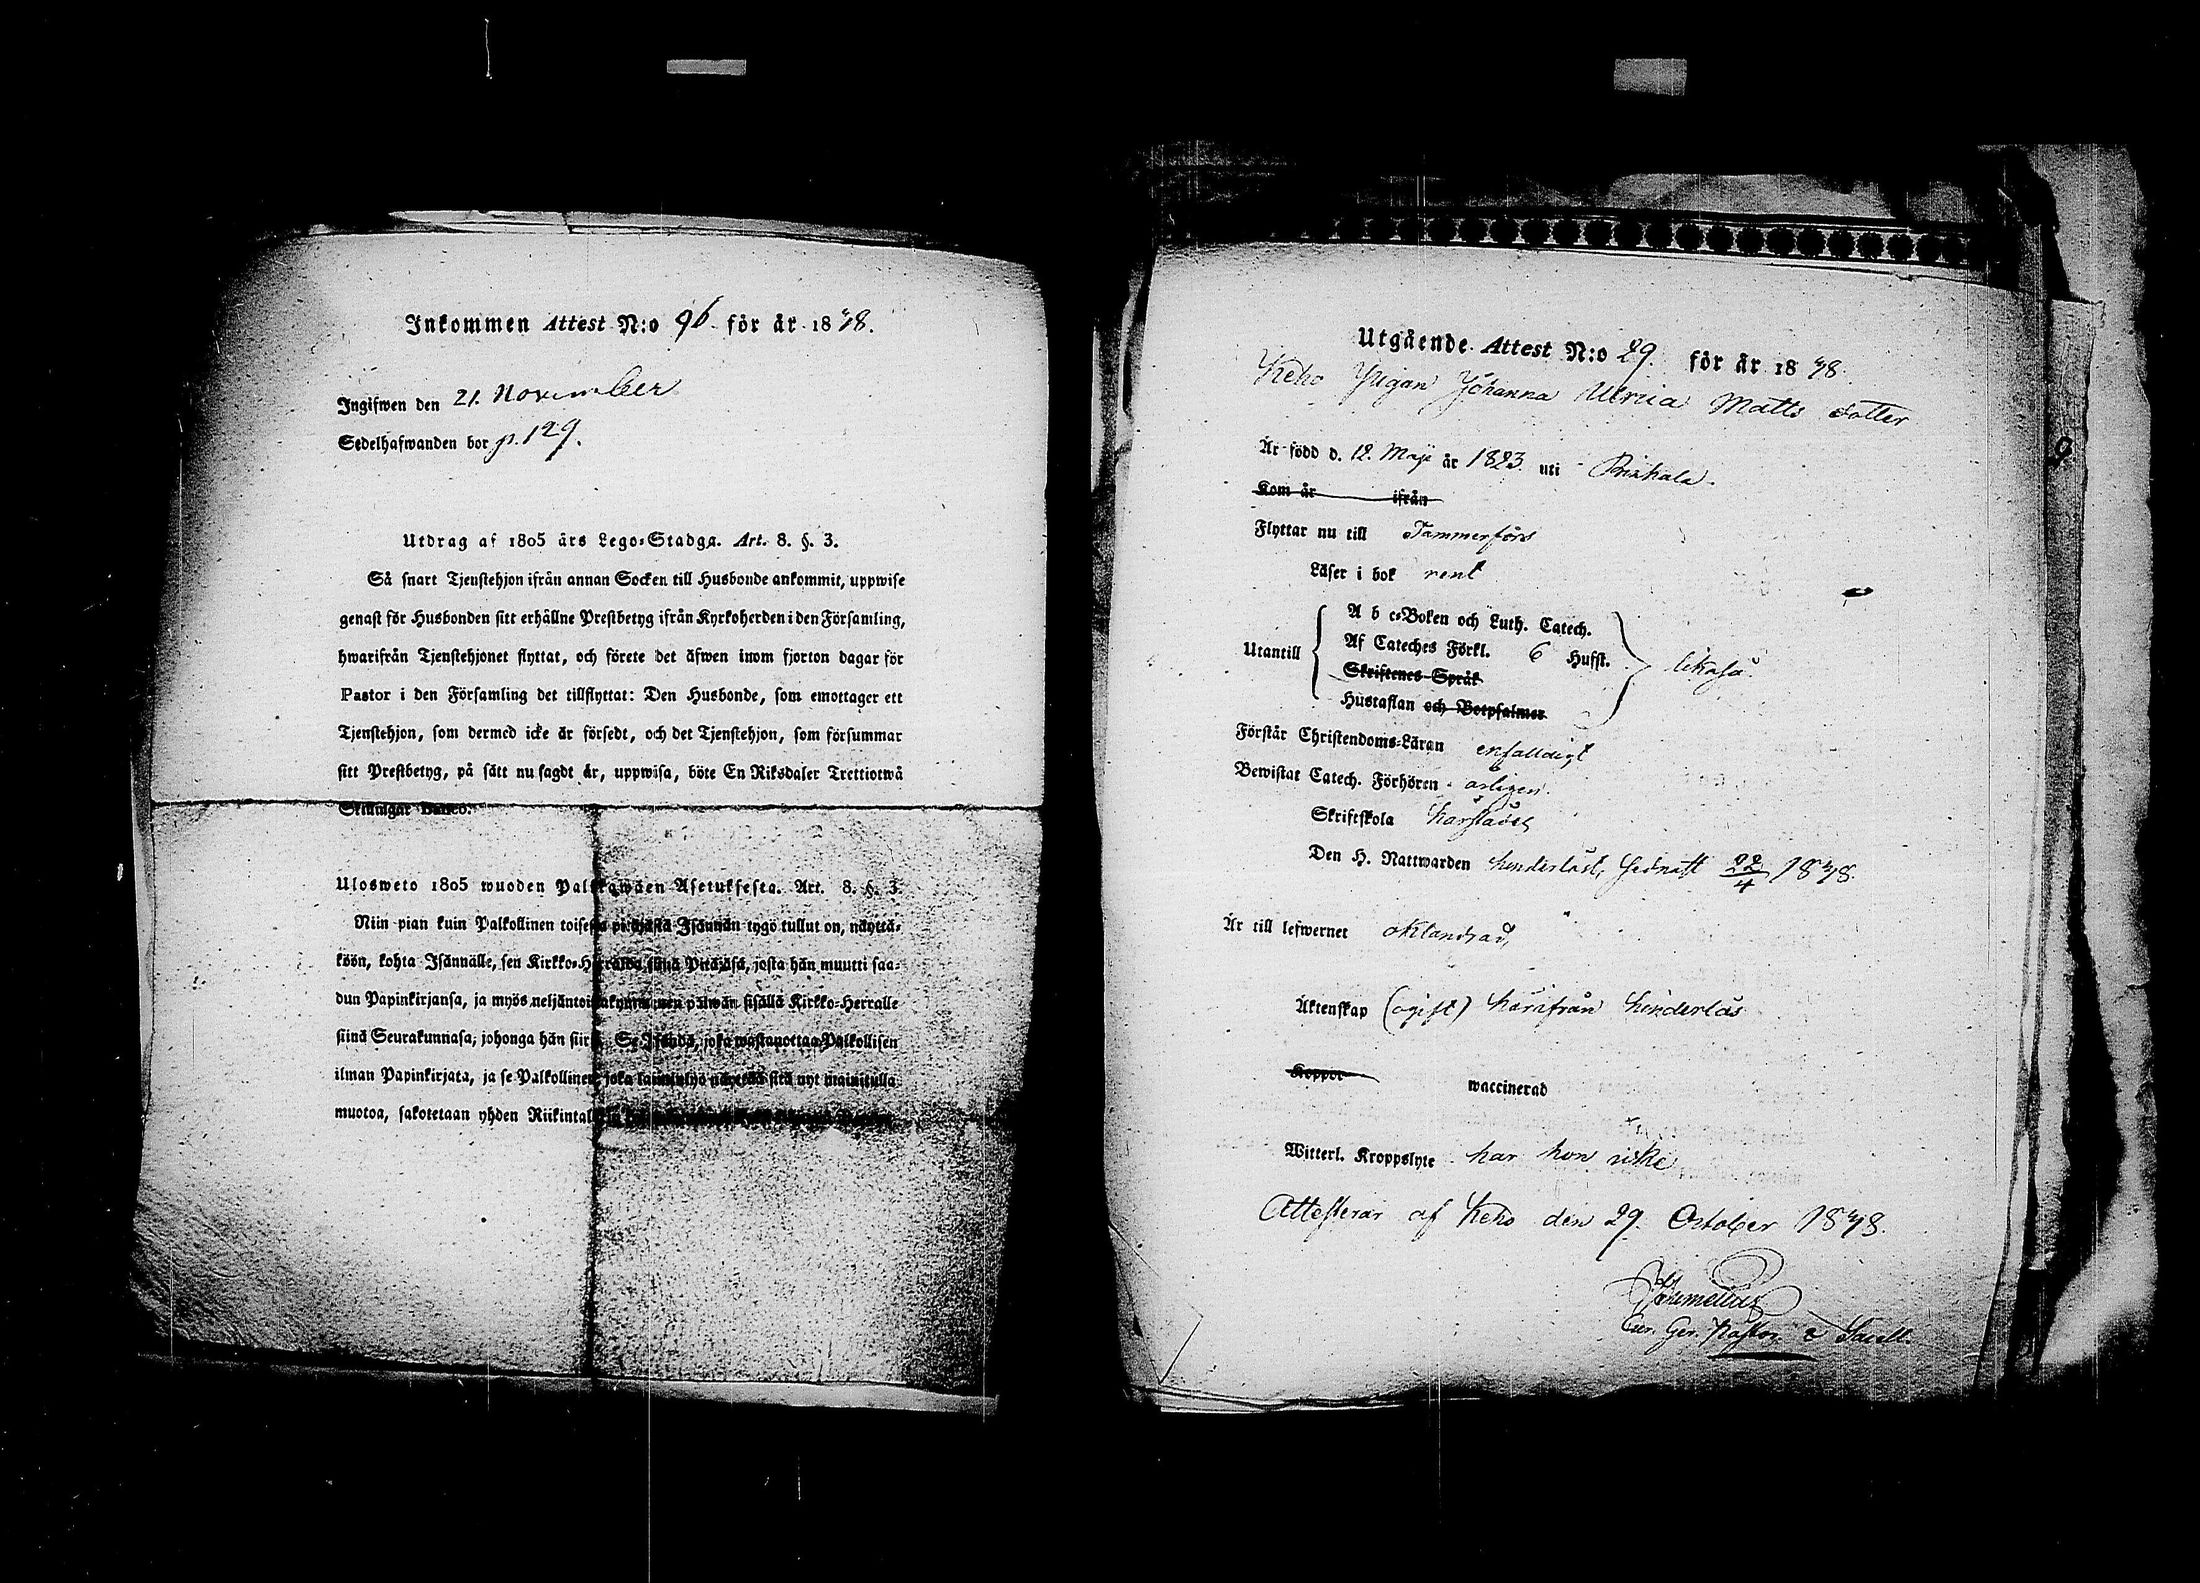 Inkommen Attest N:o 96. för år 1848.
Ingifwen den 21. November
Sedelhafwanden bor p. 129.
Utdrag af 1805 års Lego-Stadga. Art. 8. §. 3.
Så snart Tjenstehjon ifrån annan Socken till Husbonde ankommit, uppwise
genast för Husbonden sitt erhållne Prestbetyg ifrån Kyrkoherden i den Församling,
hwarifrån Tjenstehjonet flyttat, och förete det äfwen inom fjorton dagar för
Pastor i den Församling det tillflyttat: Den Husbonde, som emottager ett
Tjenstehjon, som dermed icke är försedt, och det Tjenstehjon, som försummar
sitt Prestbetyg, på sätt nu sagdt är, uppwisa, böte En Riksdaler Trettiotwå
Skillingar Banco.
Ulosweto 1805 wuoden Palkkawäen Asetuksesta. Art. 8. §. 3.
Niin pian kuin Palkollinen toisesta pitäjästä Isännän tygö tullut on, näyttä-
köön, kohta Isännälle, sen Kirkko-Herralda siinä Pitäjäsä, josta hän muutti saa-
dun Papinkirjansa, ja myös neljäntoistakymmenen päiwän sisällä Kirkko-Herralle
siinä Seurakunnasa, johonga hän siirsi. Se Isändä, joka wastanottaa Palkollisen
ilman Papinkirjata, ja se Palkollinen, joka laiminlyö näyttää sitä nyt mainitulla
muotoa, sakotetaan yhden Riikintalarin
Utgående Attest N:o 29. för år 1848.
Keho Pigan Johanna Ulrica Matts dotter
Är född d. 12. Maji år 1823 uti Birkala.
Kom år ifrån
Flyttar nu till Tammerfors
Läser i bok rent
Utantill
A b c-Boken och Luth. Catech.
Af Cateches Förkl. 6 Hufst.
Skriftenes Språk
Hustaflan och Botpsalmer
likaså
Förstår Christendoms-Läran enfaldigt
Bewistat Catech. Förhören årligen.
Skriftskola härstädes
Den H. Nattwarden hinderlöst, sednast 22/4 1848.
Är till lefwernet oklandrad,
Äktenskap (ogift) härifrån hinderlös
Koppor waccinerad
Witterl. Kroppslyte har hon icke
Attesterar af Keho den 29. October 1848.
Past. &